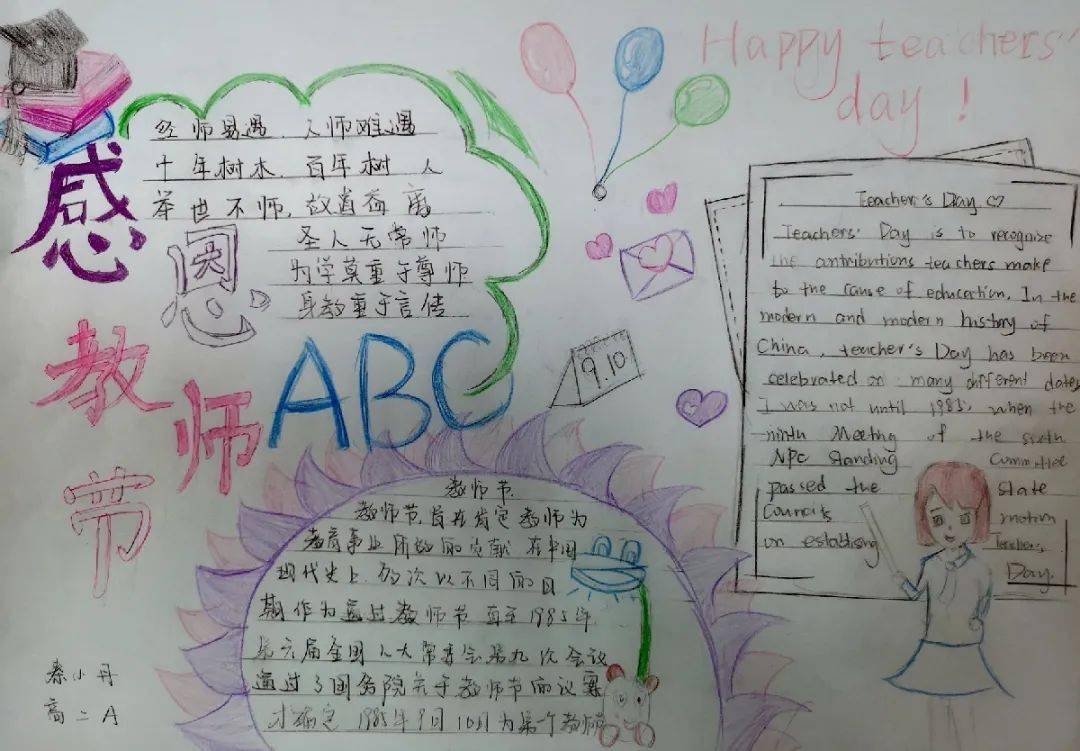 Happy teachers'
day!
感恩
教师
节
经师易遇.人师难遇
十年树木.百年树 人
举世不师,故道益离
圣人无常师
为学莫重于尊师
身教重于言传
ABC
9.10
Teacher's Day
Teachers' Day is to recognize
the contributions teachers make
to the cause of education, In the
modern and modern history of
China, teacher's Day has been
celebrated on many different dates
I was not until 1985, when the
ninth Meeting of the sixth
NPC Standing Committee
passed the state
Councils motion
on establising Teachers
Day
教师节
教师节旨在肯定教师为
教育事业所做的贡献 在中国
现代史上.多次以不同的日
期作为过教师节 直至1985年
第六届全国人大常委会第九次会议
通过了国务院关于教师节的议案
才确定 1985年9月10日为第一个教师节
秦小丹
高二A